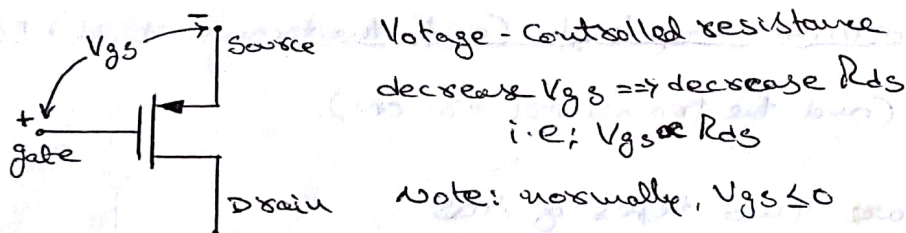 Vgs
-
Source
+
gate
Drain
Votage - Controlled resistance
decrease Vgs => decrease Rds
i.e; Vgs ∝ Rds
Note: normally, Vgs ≤ 0